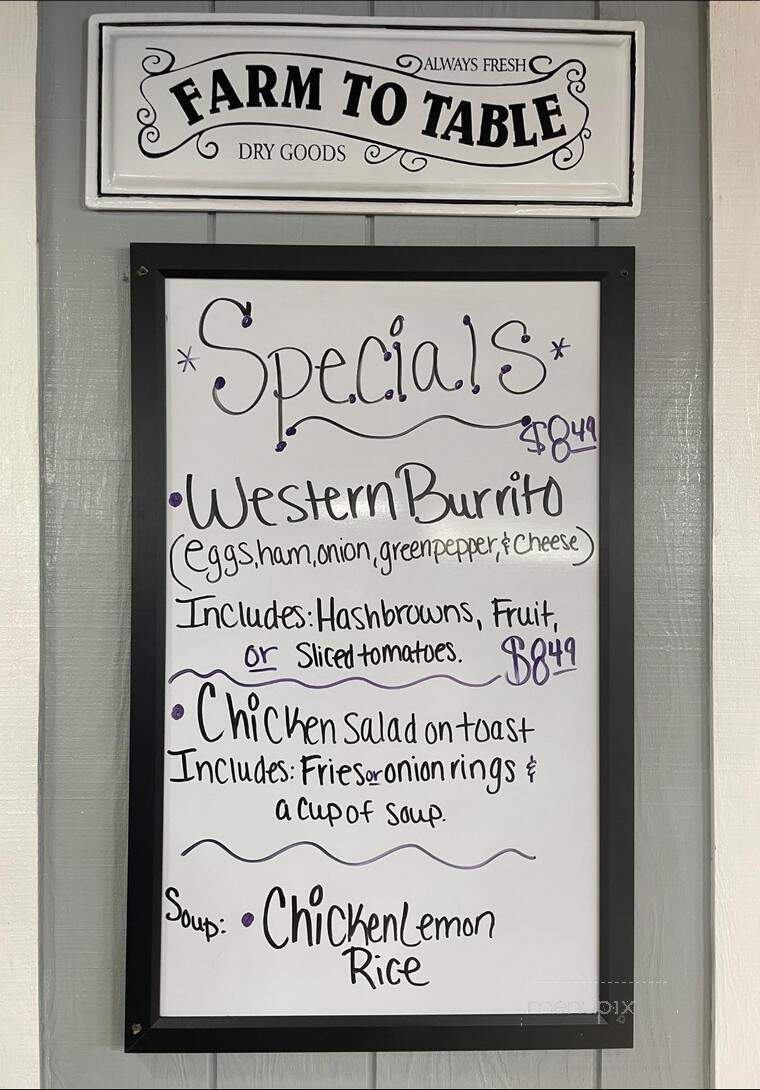 ALWAYS FRESH
FARM TO TABLE
DRY GOODS
*Specials*
$8.49
•Western Burrito
(eggs, ham, onion, green pepper, & cheese)
Includes: Hashbrowns, Fruit,
or Sliced tomatoes.
$8.49
•Chicken Salad on toast
Includes: Fries or onion rings &
a cup of soup.
Soup: •Chicken Lemon
Rice
menupix